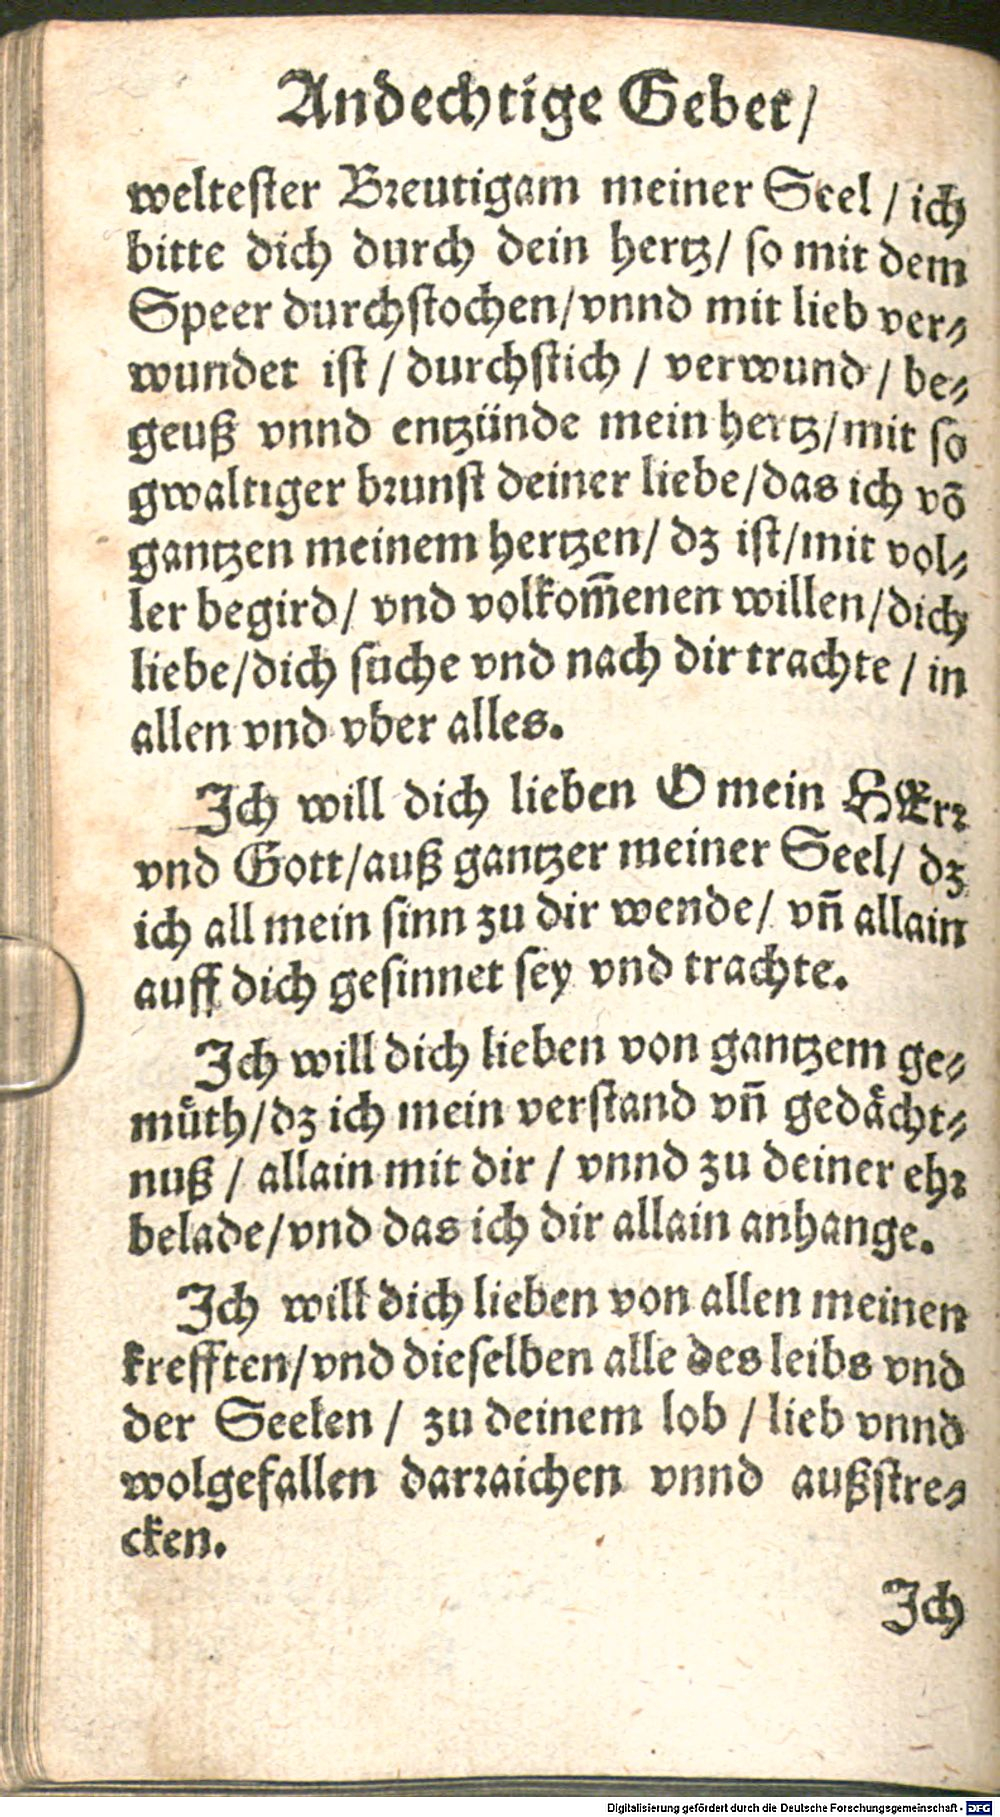 Andechtige Gebet/
weltester Breutigam meiner Seel / ich
bitte dich durch dein hertz/ so mit dem
Speer durchstochen/vnnd mit lieb ver⸗
wundet ist / durchstich / verwund / be⸗
geuß vnnd entzünde mein hertz/mit so
gwaltiger brunst deiner liebe/das ich võ
gantzen meinem hertzen/ dz ist/mit vol⸗
ler begird/ vnd volkom̃enen willen/dich
liebe/dich suche vnd nach dir trachte / in
allen vnd vber alles.
Ich will dich lieben O mein HErr
vnd Gott/auß gantzer meiner Seel/ dz
ich all mein sinn zu dir wende/ vñ allain
auff dich gesinnet sey vnd trachte.
Ich will dich lieben von gantzem ge⸗
muͤth/dz ich mein verstand vñ gedaͤcht⸗
nuß / allain mit dir / vnnd zu deiner ehr
belade/vnd das ich dir allain anhange.
Ich will dich lieben von allen meinen
krefften/vnd dieselben alle des leibs vnd
der Seelen / zu deinem lob / lieb vnnd
wolgefallen darraichen vnnd außstre⸗
cken.
Ich
Digitalisierung gefördert durch die Deutsche Forschungsgemeinschaft - DFG